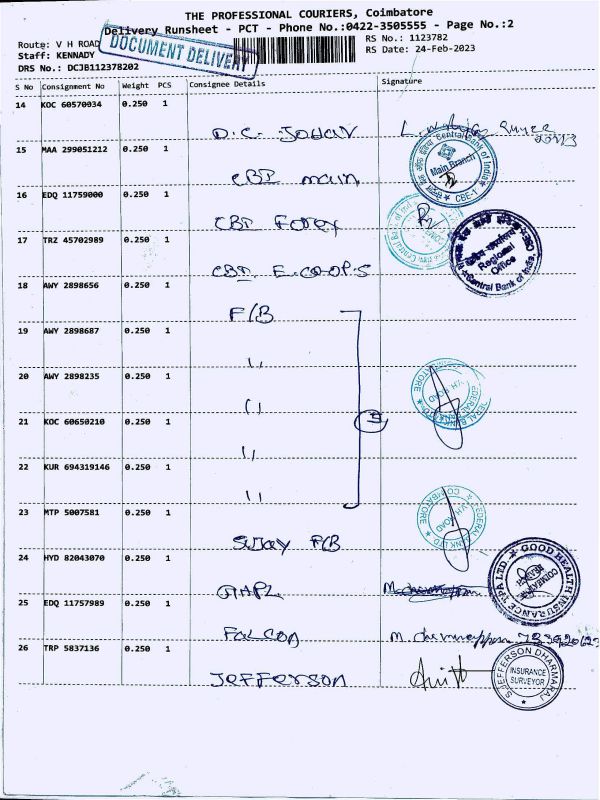 THE PROFESSIONAL COURIERS, Coimbatore
Delivery Runsheet - PCT - Phone No.:0422-3505555 - Page No.:2
Route: V H ROAD
RS No.: 1123782
Staff: KENNADY
RS Date: 24-Feb-2023
DRS No.: DCJB112378202
DOCUMENT DELIVERY
S No Consignment No Weight PCS Consignee Details Signature
14 KOC 60570034 0.250 1
15 MAA 299051212 0.250 1
CBI main
Central Bank of India
Main Branch
CBE-1
16 EDQ 11759000 0.250 1
CBI Forex
17 TRZ 45702989 0.250 1
CBI
Regional Office
Central Bank of India
18 AWY 2898656 0.250 1
F/B
19 AWY 2898687 0.250 1
''
20 AWY 2898235 0.250 1
''
21 KOC 60650210 0.250 1
''
5
22 KUR 694319146 0.250 1
''
23 MTP 5007581 0.250 1
F/B
FEDERAL BANK LTD
V.H. ROAD
COIMBATORE
24 HYD 82043070 0.250 1
GHPL
GOOD HEALTH INSURANCE TPA LTD
COIMBATORE
25 EDQ 11757989 0.250 1
FALCON
26 TRP 5837136 0.250 1
Jefferson
S. JEFFERSON DHARMARAJ
INSURANCE SURVEYOR